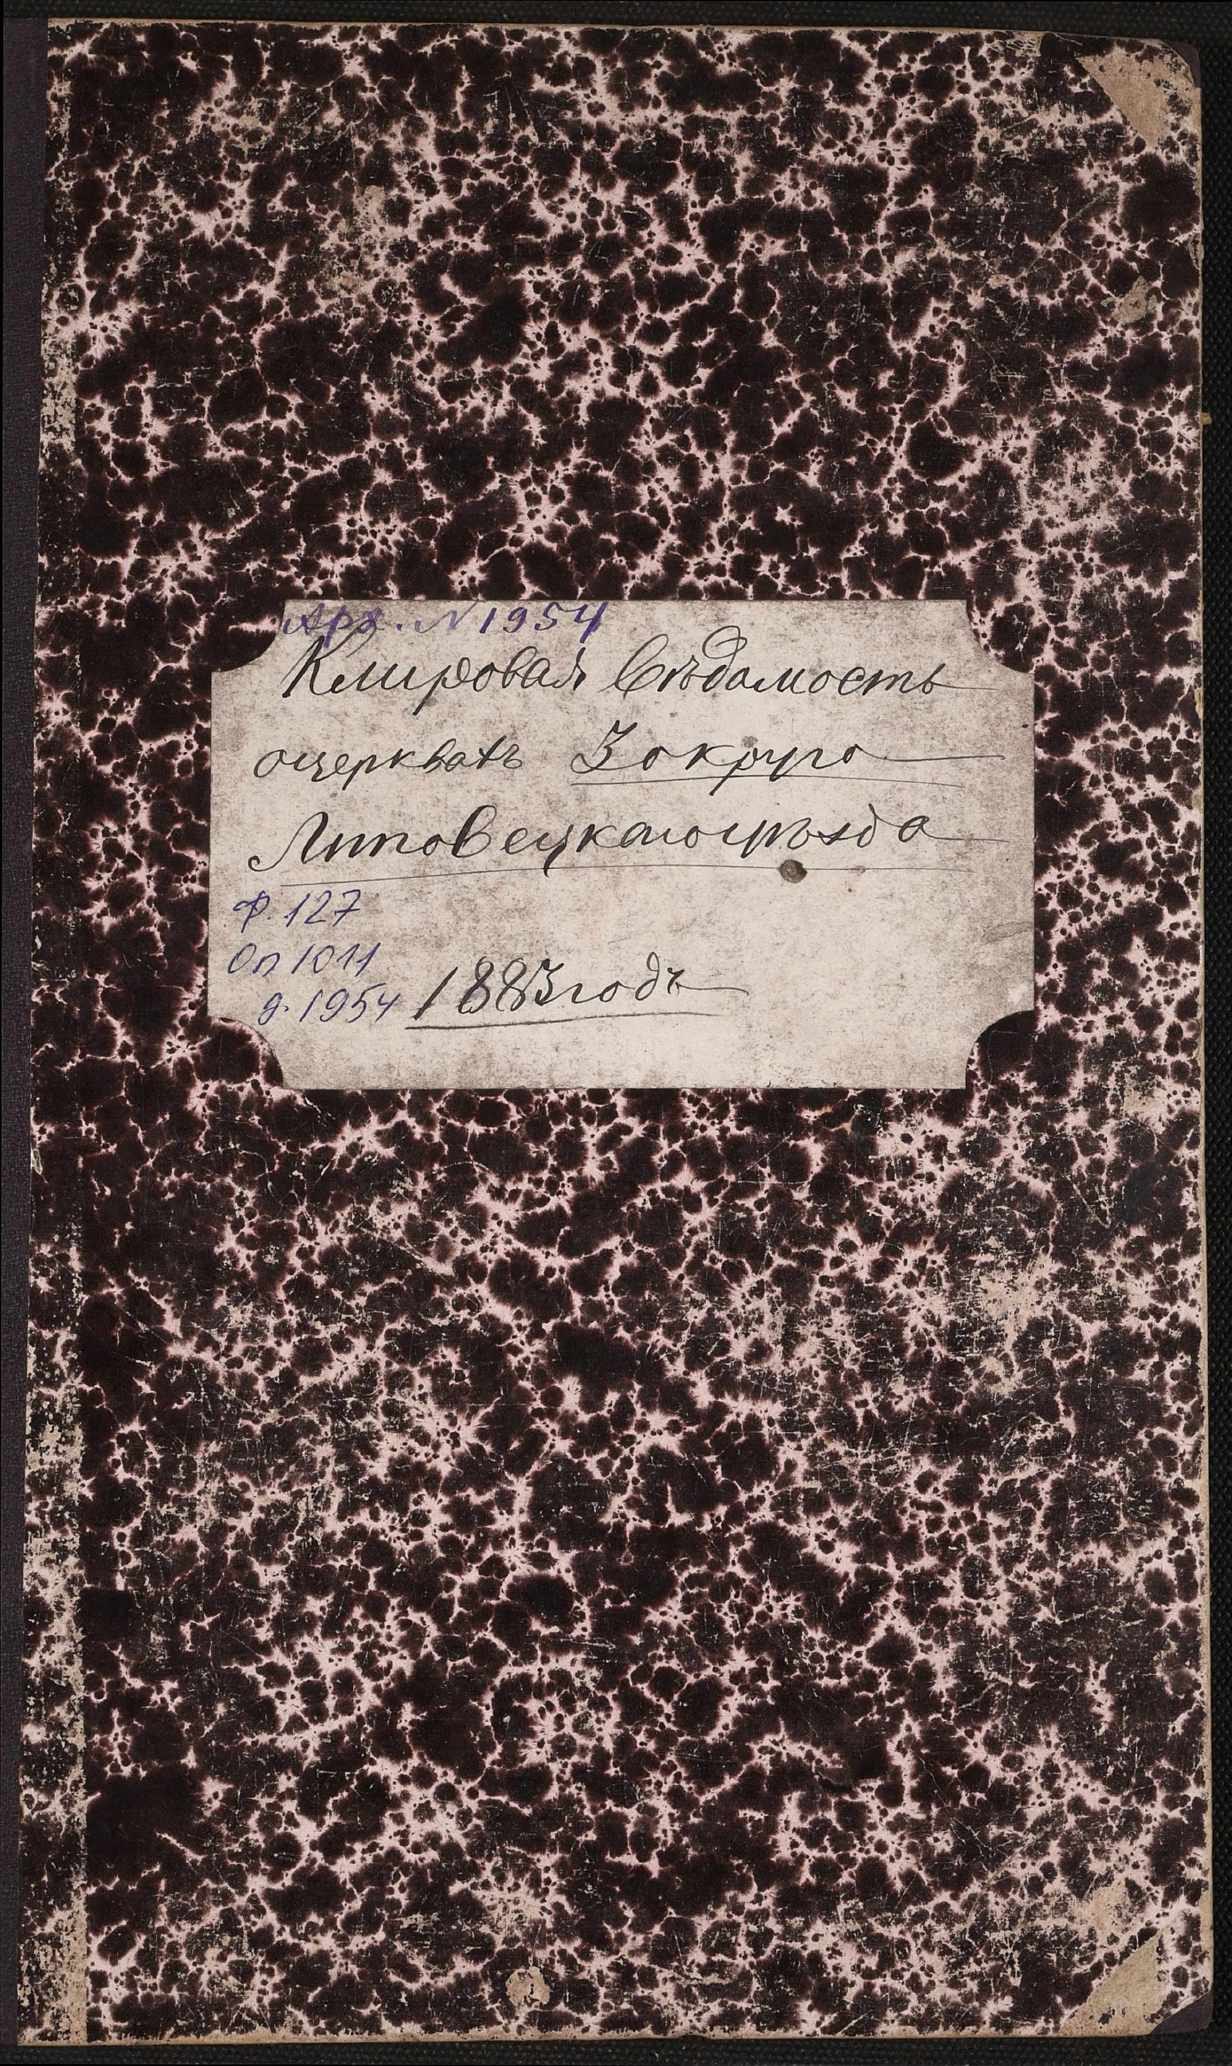 Арх. N 1954
Клировая Вѣдомость
оцерквахъ 3 округа
Липовецкагоуѣзда
Ф. 127
Оп 1011
д. 1954
1883 годъ